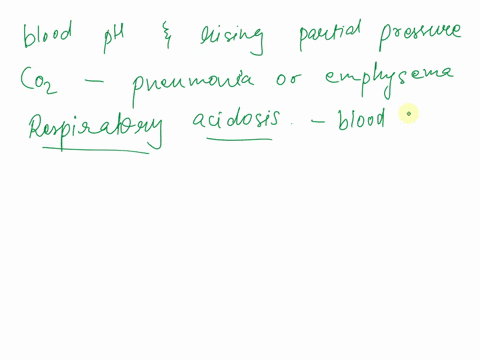 blood pH & rising partial pressure
CO2 – pneumonia or emphysema
Respiratory acidosis. – blood